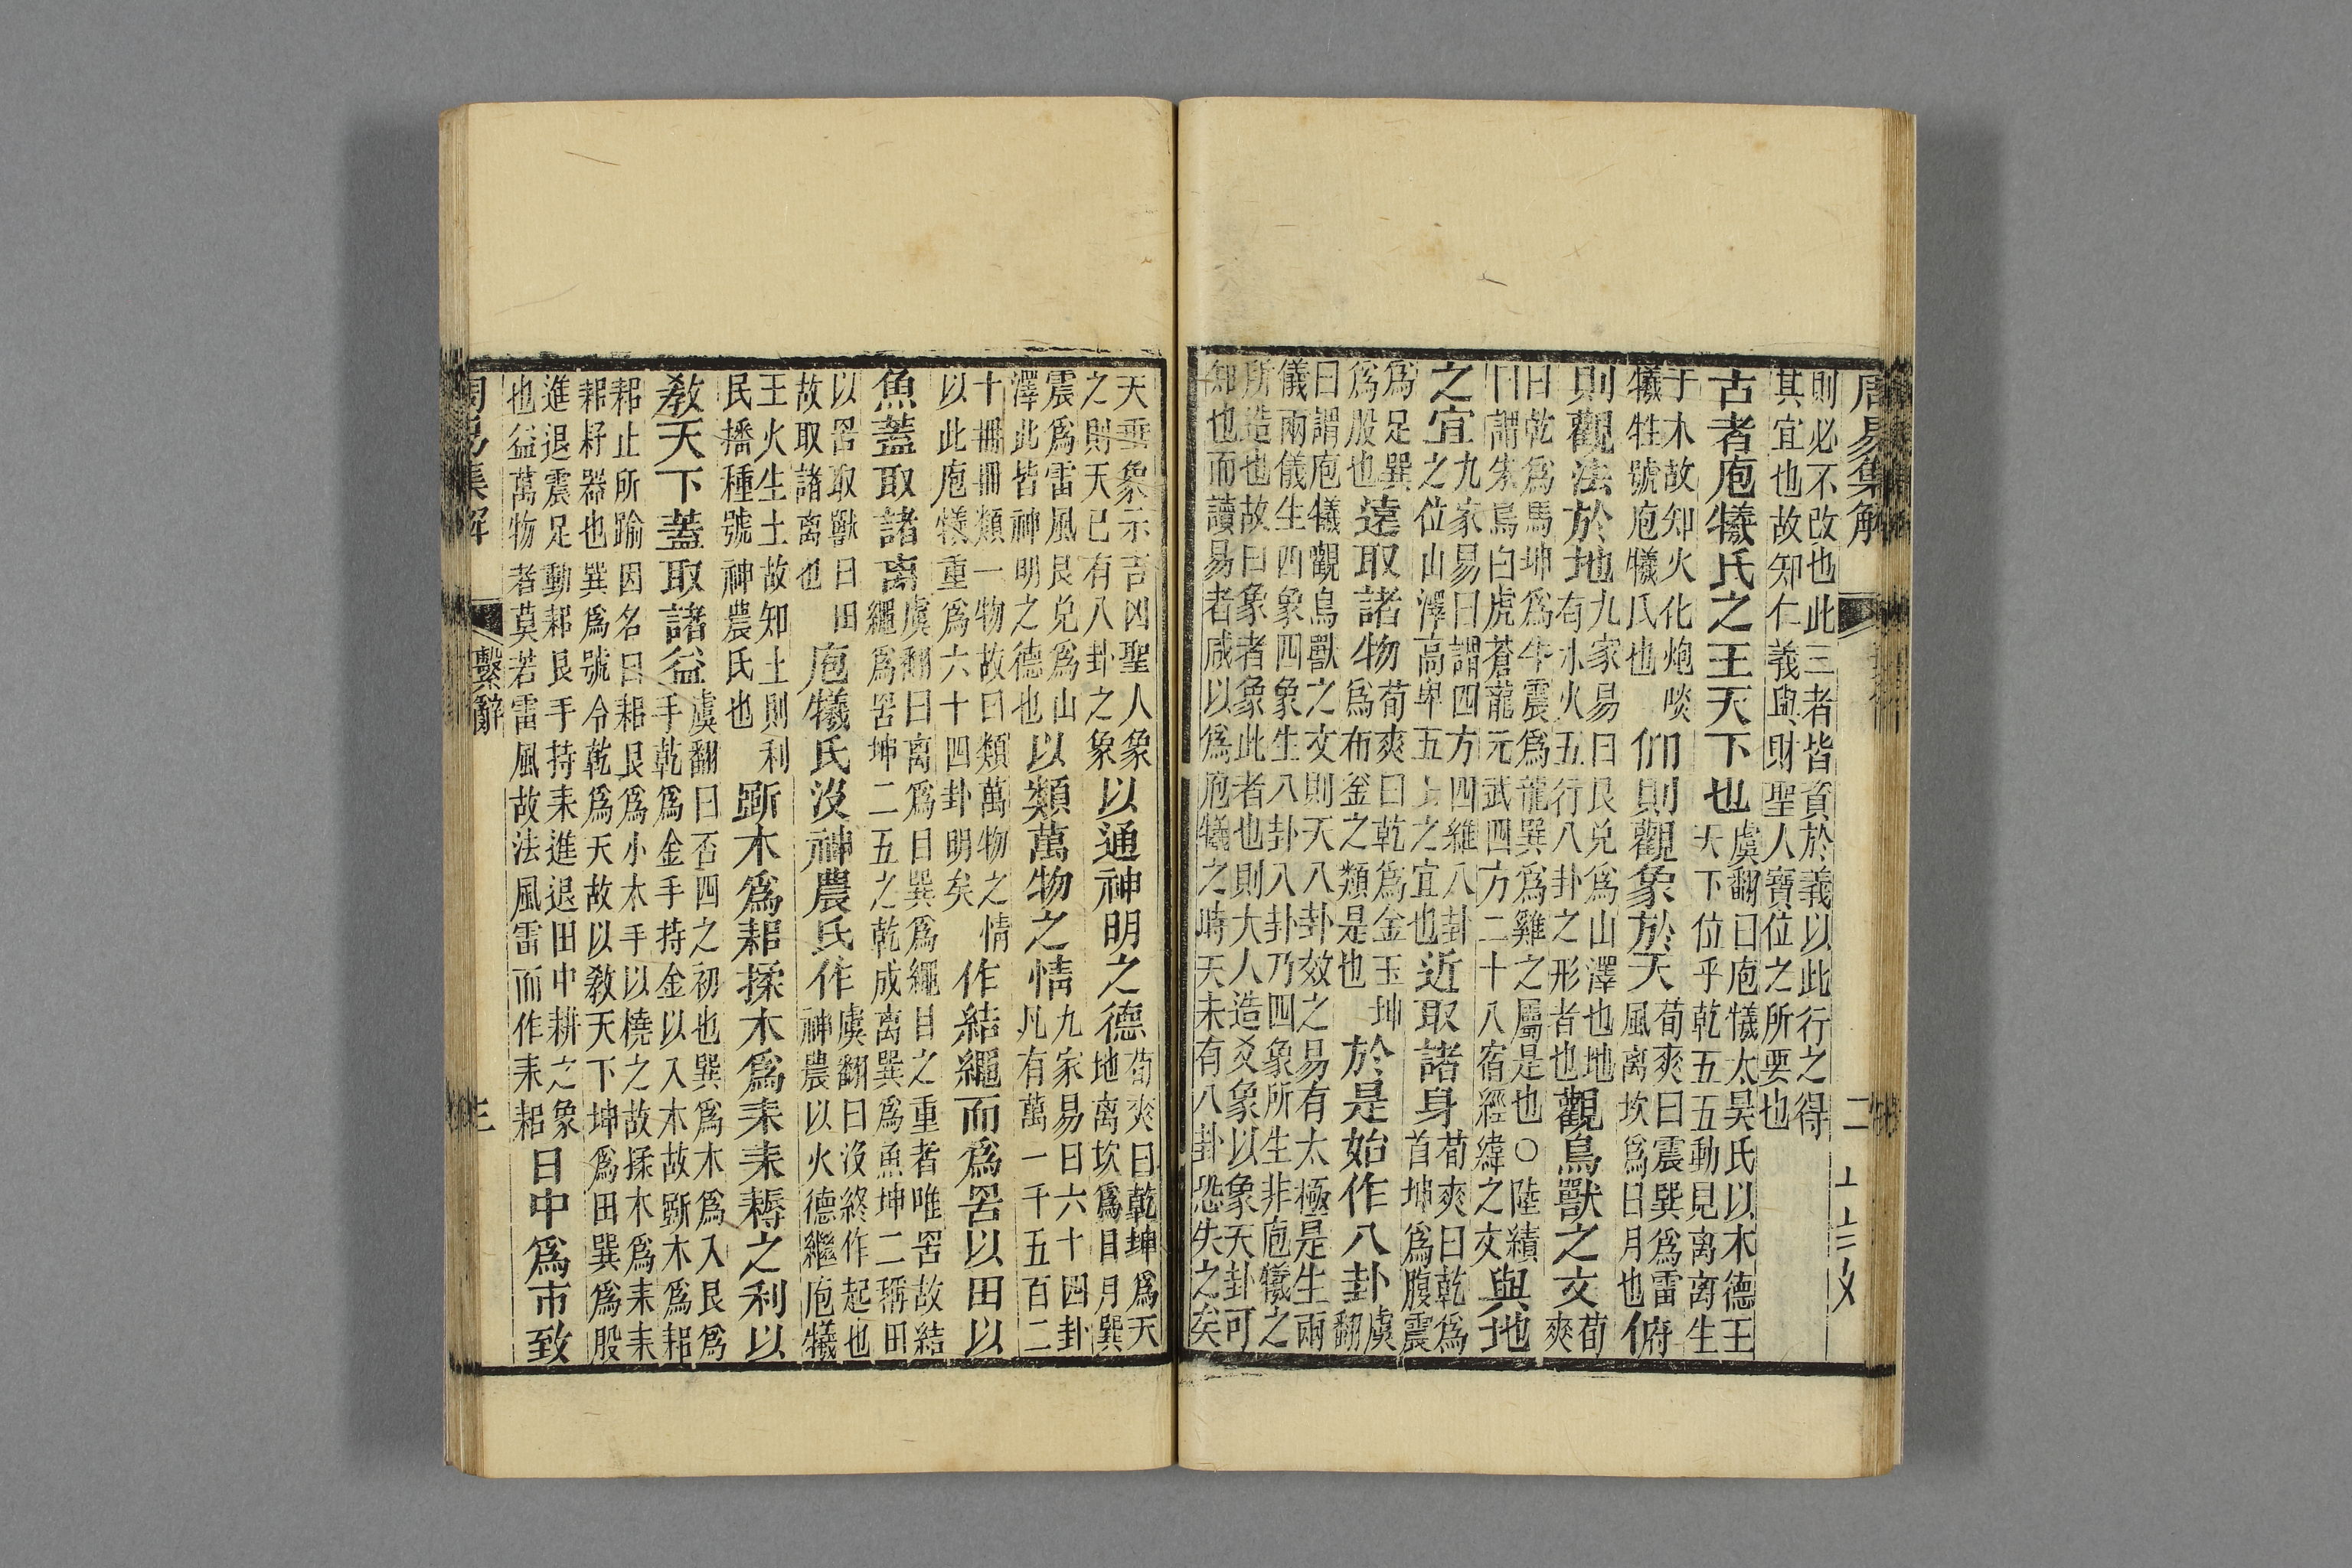 周易集解
二
則必不改也此三者皆資於義以此行之得
其宜也故知仁義與財聖人寶位之所要也
古者庖犧氏之王天下也虞翻曰庖犧太昊氏以木德王
天下位乎乾五五動見離離生
于木故知火化炮啖
犧牲號庖犧氏也
仰則觀象於天荀爽曰震巽爲雷
風离坎爲日月也
俯
則觀法於地九家易曰艮兌爲山澤也地
有水火五行八卦之形者也
觀鳥獸之文荀
爽
曰乾爲馬坤爲牛震爲龍巽爲雞之屬是也〇陸績
曰謂朱鳥白虎蒼龍元武四方二十八宿經緯之文
與地
之宜九家易曰謂四方四維八卦
之位山澤高卑五土之宜也
近取諸身荀爽曰乾爲
首坤爲腹震
爲足巽
爲股也
遠取諸物荀爽曰乾爲金玉坤
爲布釜之類是也
於是始作八卦虞
翻
曰謂庖犧觀鳥獸之文則天八卦效之易有太極是生兩
儀兩儀生四象四象生八卦八卦乃四象所生非庖犧之
所造也故曰象者象此者也則大人造爻象以象天卦可
知也而讀易者咸以爲庖犧之時天未有八卦恐失之矣
天垂象示吉凶聖人象
之則天已有八卦之象
以通神明之德荀爽曰乾坤爲天
地离坎爲日月巽
震爲雷風艮兌爲山
澤此皆神明之德也
以類萬物之情九家易曰六十四卦
凡有萬一千五百二
十冊冊類一物故曰類萬物之情
以此庖犧重爲六十四卦明矣
作結繩而爲罟以田以
魚蓋取諸离虞翻曰离爲目巽爲繩目之重者唯罟故結
繩爲罟坤二五之乾成离巽爲魚坤二稱田
以罟取獸曰田
故取諸离也
庖犧氏沒神農氏作虞翻曰沒終作起也
神農以火德繼庖犧
王火生土故知土則利
民播種號神農氏也
斲木爲耜揉木爲耒耒耨之利以
教天下蓋取諸益虞翻曰否四之初也巽爲木爲入艮爲
手乾爲金手持金以入木故斲木爲耜
耜止所踰因名曰耜艮爲小木手以橈之故揉木爲耒耒
耜耔器也巽爲號令乾爲天故以教天下坤爲田巽爲股
進退震足動耜艮手持耒進退田中耕之象
也益萬物者莫若雷風故法風雷而作耒耜
日中爲市致
周易集解
繫辭
三